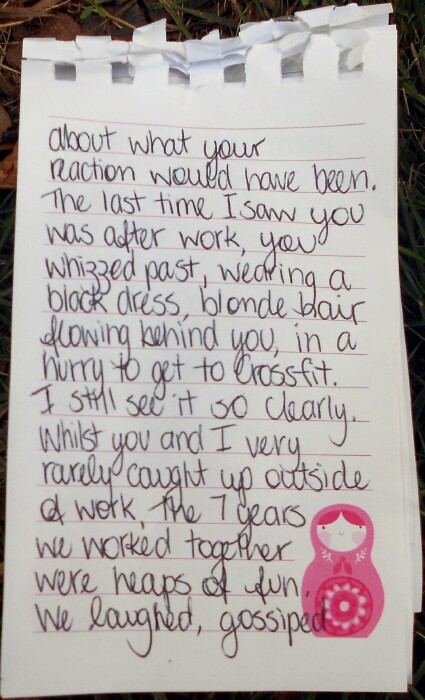 about what your
reaction would have been.
The last time I saw you
was after work, you
whizzed past, wearing a
black dress, blonde hair
flowing behind you, in a
hurry to get to Crossfit.
I still see it so clearly.
Whilst you and I very
rarely caught up outside
of work, the 7 years
we worked together
were heaps of fun.
We laughed, gossiped